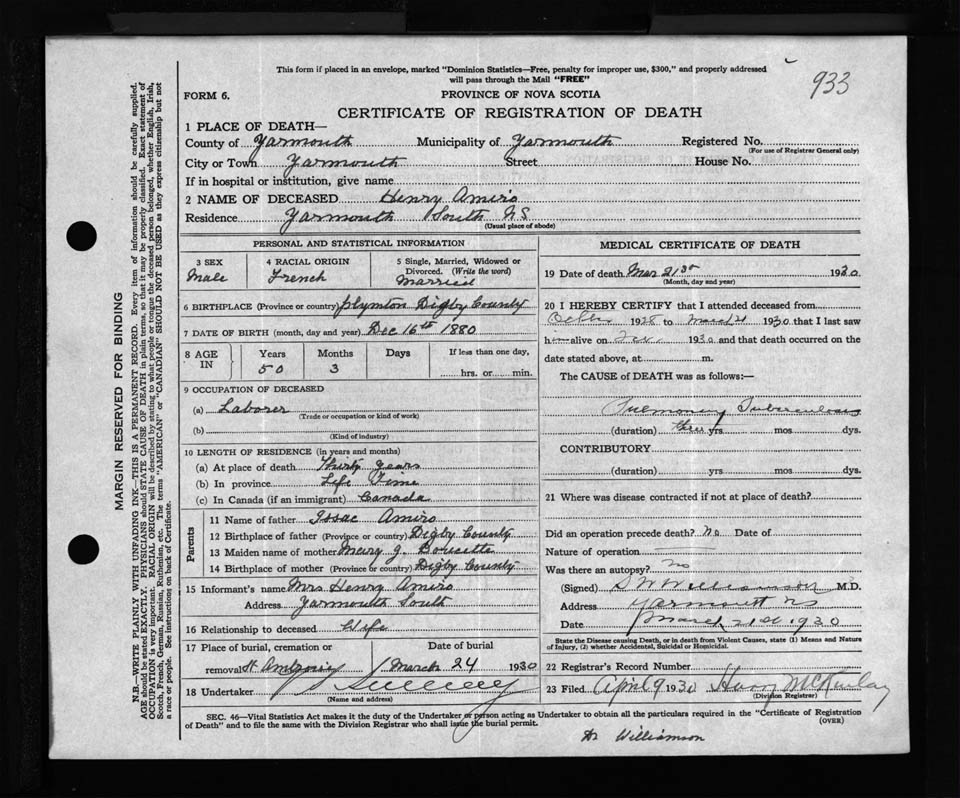 933
This form if placed in an envelope, marked "Dominion Statistics—Free, penalty for improper use, $300," and properly addressed
will pass through the Mail "FREE"
FORM 6.
PROVINCE OF NOVA SCOTIA
CERTIFICATE OF REGISTRATION OF DEATH
1 PLACE OF DEATH—
County of Yarmouth Municipality of Yarmouth Registered No.
(For use of Registrar General only)
City or Town Yarmouth Street House No.
If in hospital or institution, give name
2 NAME OF DECEASED Henry Amiro
Residence Yarmouth South NS
(Usual place of abode)
PERSONAL AND STATISTICAL INFORMATION
3 SEX
Male
4 RACIAL ORIGIN
French
5 Single, Married, Widowed or
Divorced. (Write the word)
Married
6 BIRTHPLACE (Province or country) Plymton Digby County
7 DATE OF BIRTH (month, day and year) Dec 16th 1880
8 AGE
IN
Years Months Days If less than one day,
50 3 hrs. or min.
9 OCCUPATION OF DECEASED
(a) Laborer
(Trade or occupation or kind of work)
(b)
(Kind of industry)
10 LENGTH OF RESIDENCE (in years and months)
(a) At place of death Thirty years
(b) In province Life Time
(c) In Canada (if an immigrant) Canada
Parents
11 Name of father Issac Amiro
12 Birthplace of father (Province or country) Digby County
13 Maiden name of mother Mary J. Doucette
14 Birthplace of mother (Province or country) Digby County
15 Informant's name Mrs Henry Amiro
Address Yarmouth South
16 Relationship to deceased Wife
17 Place of burial, cremation or Date of burial
removal St Ambrose March 24 1930
18 Undertaker
(Name and address)
MEDICAL CERTIFICATE OF DEATH
19 Date of death Mar 21st 1930
(Month, day and year)
20 I HEREBY CERTIFY that I attended deceased from
1928 to March 21 1930 that I last saw
him alive on 1930 and that death occurred on the
date stated above, at m.
The CAUSE of DEATH was as follows:—
Pulmonary Tuberculosis
(duration) three yrs mos dys.
CONTRIBUTORY
(duration) yrs mos dys.
21 Where was disease contracted if not at place of death?
Did an operation precede death? No Date of
Nature of operation
Was there an autopsy? No
(Signed) S W Williamson M.D.
Address Yarmouth NS
Date March 21st 1930
State the Disease causing Death, or in death from Violent Causes, state (1) Means and Nature
of Injury, (2) whether Accidental, Suicidal or Homicidal.
22 Registrar's Record Number
23 Filed April 9 1930
(Division Registrar)
SEC. 46—Vital Statistics Act makes it the duty of the Undertaker or person acting as Undertaker to obtain all the particulars required in the "Certificate of Registration
of Death" and to file the same with the Division Registrar who shall issue the burial permit.
(OVER)
Dr Williamson
MARGIN RESERVED FOR BINDING
N.B.—WRITE PLAINLY WITH UNFADING INK—THIS IS A PERMANENT RECORD. Every item of information should be carefully supplied.
AGE should be stated EXACTLY. PHYSICIANS should STATE CAUSE OF DEATH in plain terms, so that it may be properly classified. Exact statement of
OCCUPATION is very important. RACIAL ORIGIN will be described by stating to what people or tongue the deceased person belonged, whether English, Irish,
Scotch, French, German, Russian, Ruthenian, etc. The terms "AMERICAN" or "CANADIAN" SHOULD NOT BE USED as they express citizenship but not
a race or people. See instructions on back of Certificate.